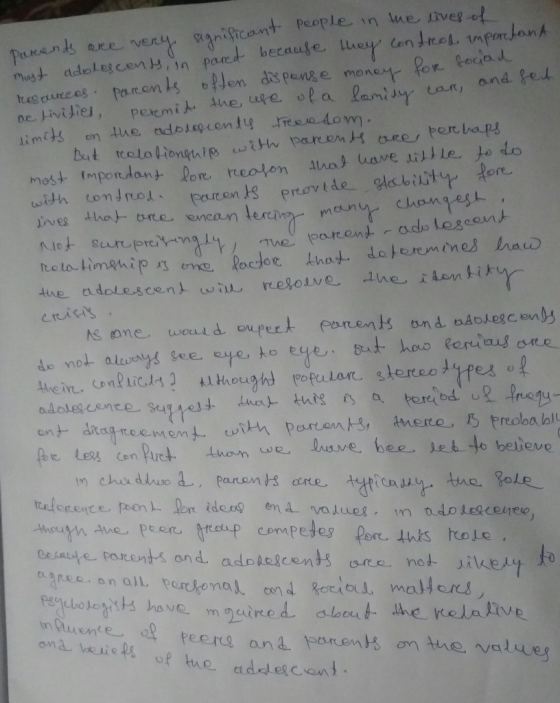 parents are very significant people in the lives of
most adolescents, in part because they control important
resources. parents often dispense money for social
activities, permit the use of a family car, and set
limits on the adolescents freedom.
But relationship with parents are, perhaps
most important for reason that have little to do
with control. parents provide stability for
lives that are encantering many changest.
Not surprisingly, the parent-adolescent
relationship is one factor that determines how
the adolescent will resolve the identity
crisis.
As one would expect parents and adolescents
do not always see eye to eye. But how serious are
their conflicts? Althought popular stereotypes of
adolescence suggest that this is a period of frequ-
ent disagreement with parents, there is probabl
for less conflict than we have bee led to believe
in childhood, parents are typically the sole
reference point for ideas and values. in adolescence,
though the peer group competes for this role.
Because parents and adolescents are not likely to
agree on all personal and social matters,
psychologists have inquired about the relative
influence of peers and parents on the values
and beliefs of the adolescent.